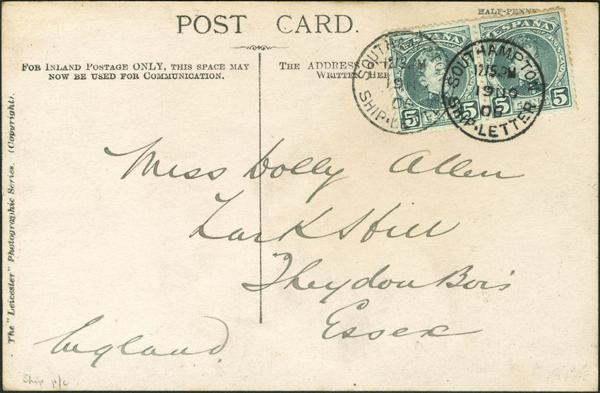 POST CARD.
HALF-PENNY
FOR INLAND POSTAGE ONLY, THIS SPACE MAY
NOW BE USED FOR COMMUNICATION.
THE ADDRESS
WRITTEN HER
ESPAÑA
ESPAÑA
5 5
5 5
SOUTHAMPTON
12.15.PM
SHIP-LETTER
SOUTHAMPTON
12.15.PM
19 NO
SHIP-LETTER
Miss Dolly Allen
Lark Hill
Theydon Bois
Essex
England.
The "Leicester" Photographic Series. (Copyright).
Ship p/c